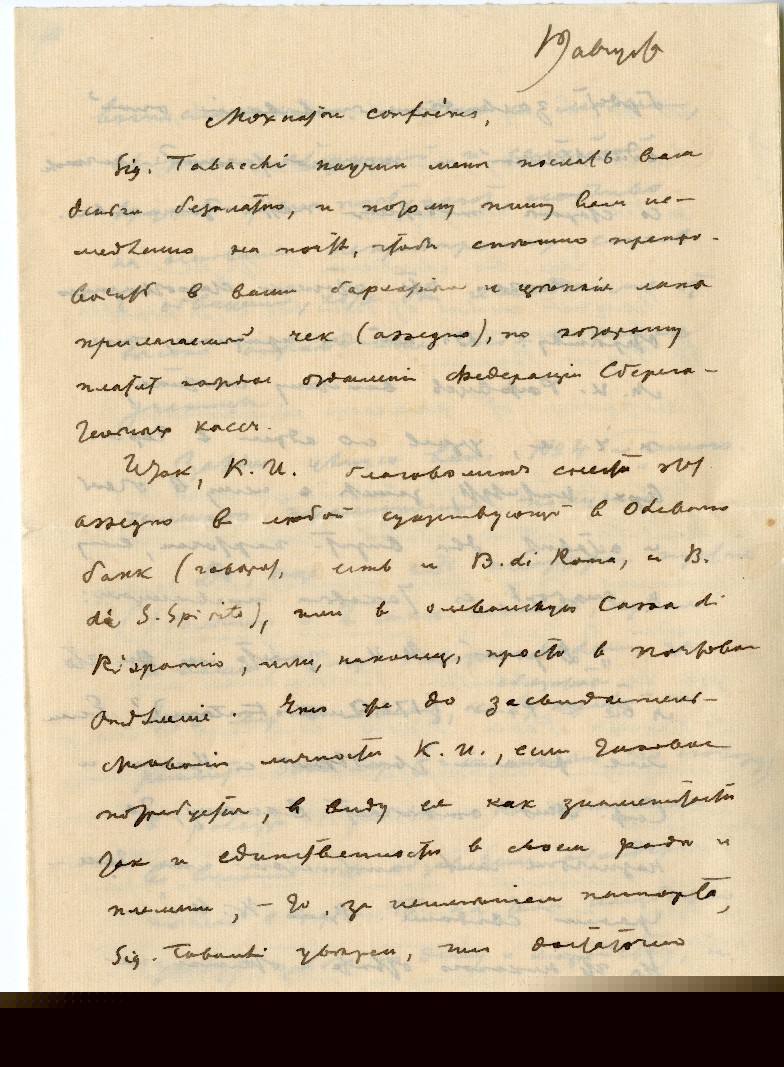 Мохнатые confrères,
Sig. Tabacchi научил меня послать вам
деньги безплатно, и потому пишу вам не-
медленно на почтѣ, чтобы спѣшно препро-
водить в ваши бархатныя и цѣпкія лапы
прилагаемый чек (assegno), по которому
платит каждое отдѣленіе Федераціи Сберега-
тельных касс.
Итак, К. И. благоволит снести этот
assegno в любой существующій в Olevano
банк (говорят, есть и B. di Roma, и B.
di S. Spirito), или в олеванскую Cassa di
Risparmio, или, наконец, просто в почтовое
отдѣленіе. Что же до засвидѣтель-
ствованія личности К. И., если таковое
потребуется, в виду ея как знаменитости
так и единственности в своем родѣ и
племени, – то, за неимѣніем паспорта,
Sig. Tabacchi увѣрен, что достаточно